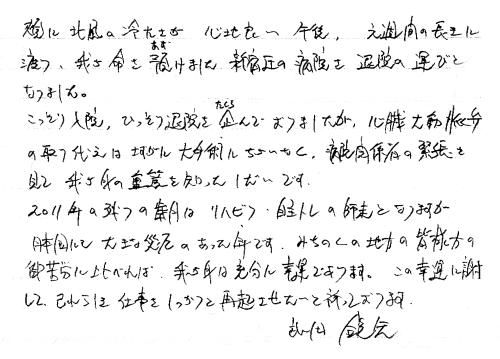 頬に北風の冷たさが心地良い午後、六週間の長きに
渡つ、我が命を預けました新宿区の病院を退院の運びと
なりました。
こっそり入院、ひっそり退院を企んでおりましたが、心臓大動脈弁
の取り代えはさすがに大手術にちがいなく、病院関係者の緊張を
見て我が身の重篤を知ったしだいです。
2011年の残りの業月はリハビリ・自主トレの師走となりますが
日本国にとって大きな災厄のあった年です。みちのくの地方の皆様方の
御苦労に比べれば、我が身は充分に幸運であります。この幸運に謝
して、これらを仕事をしっかりと再起させたいと祈っております。